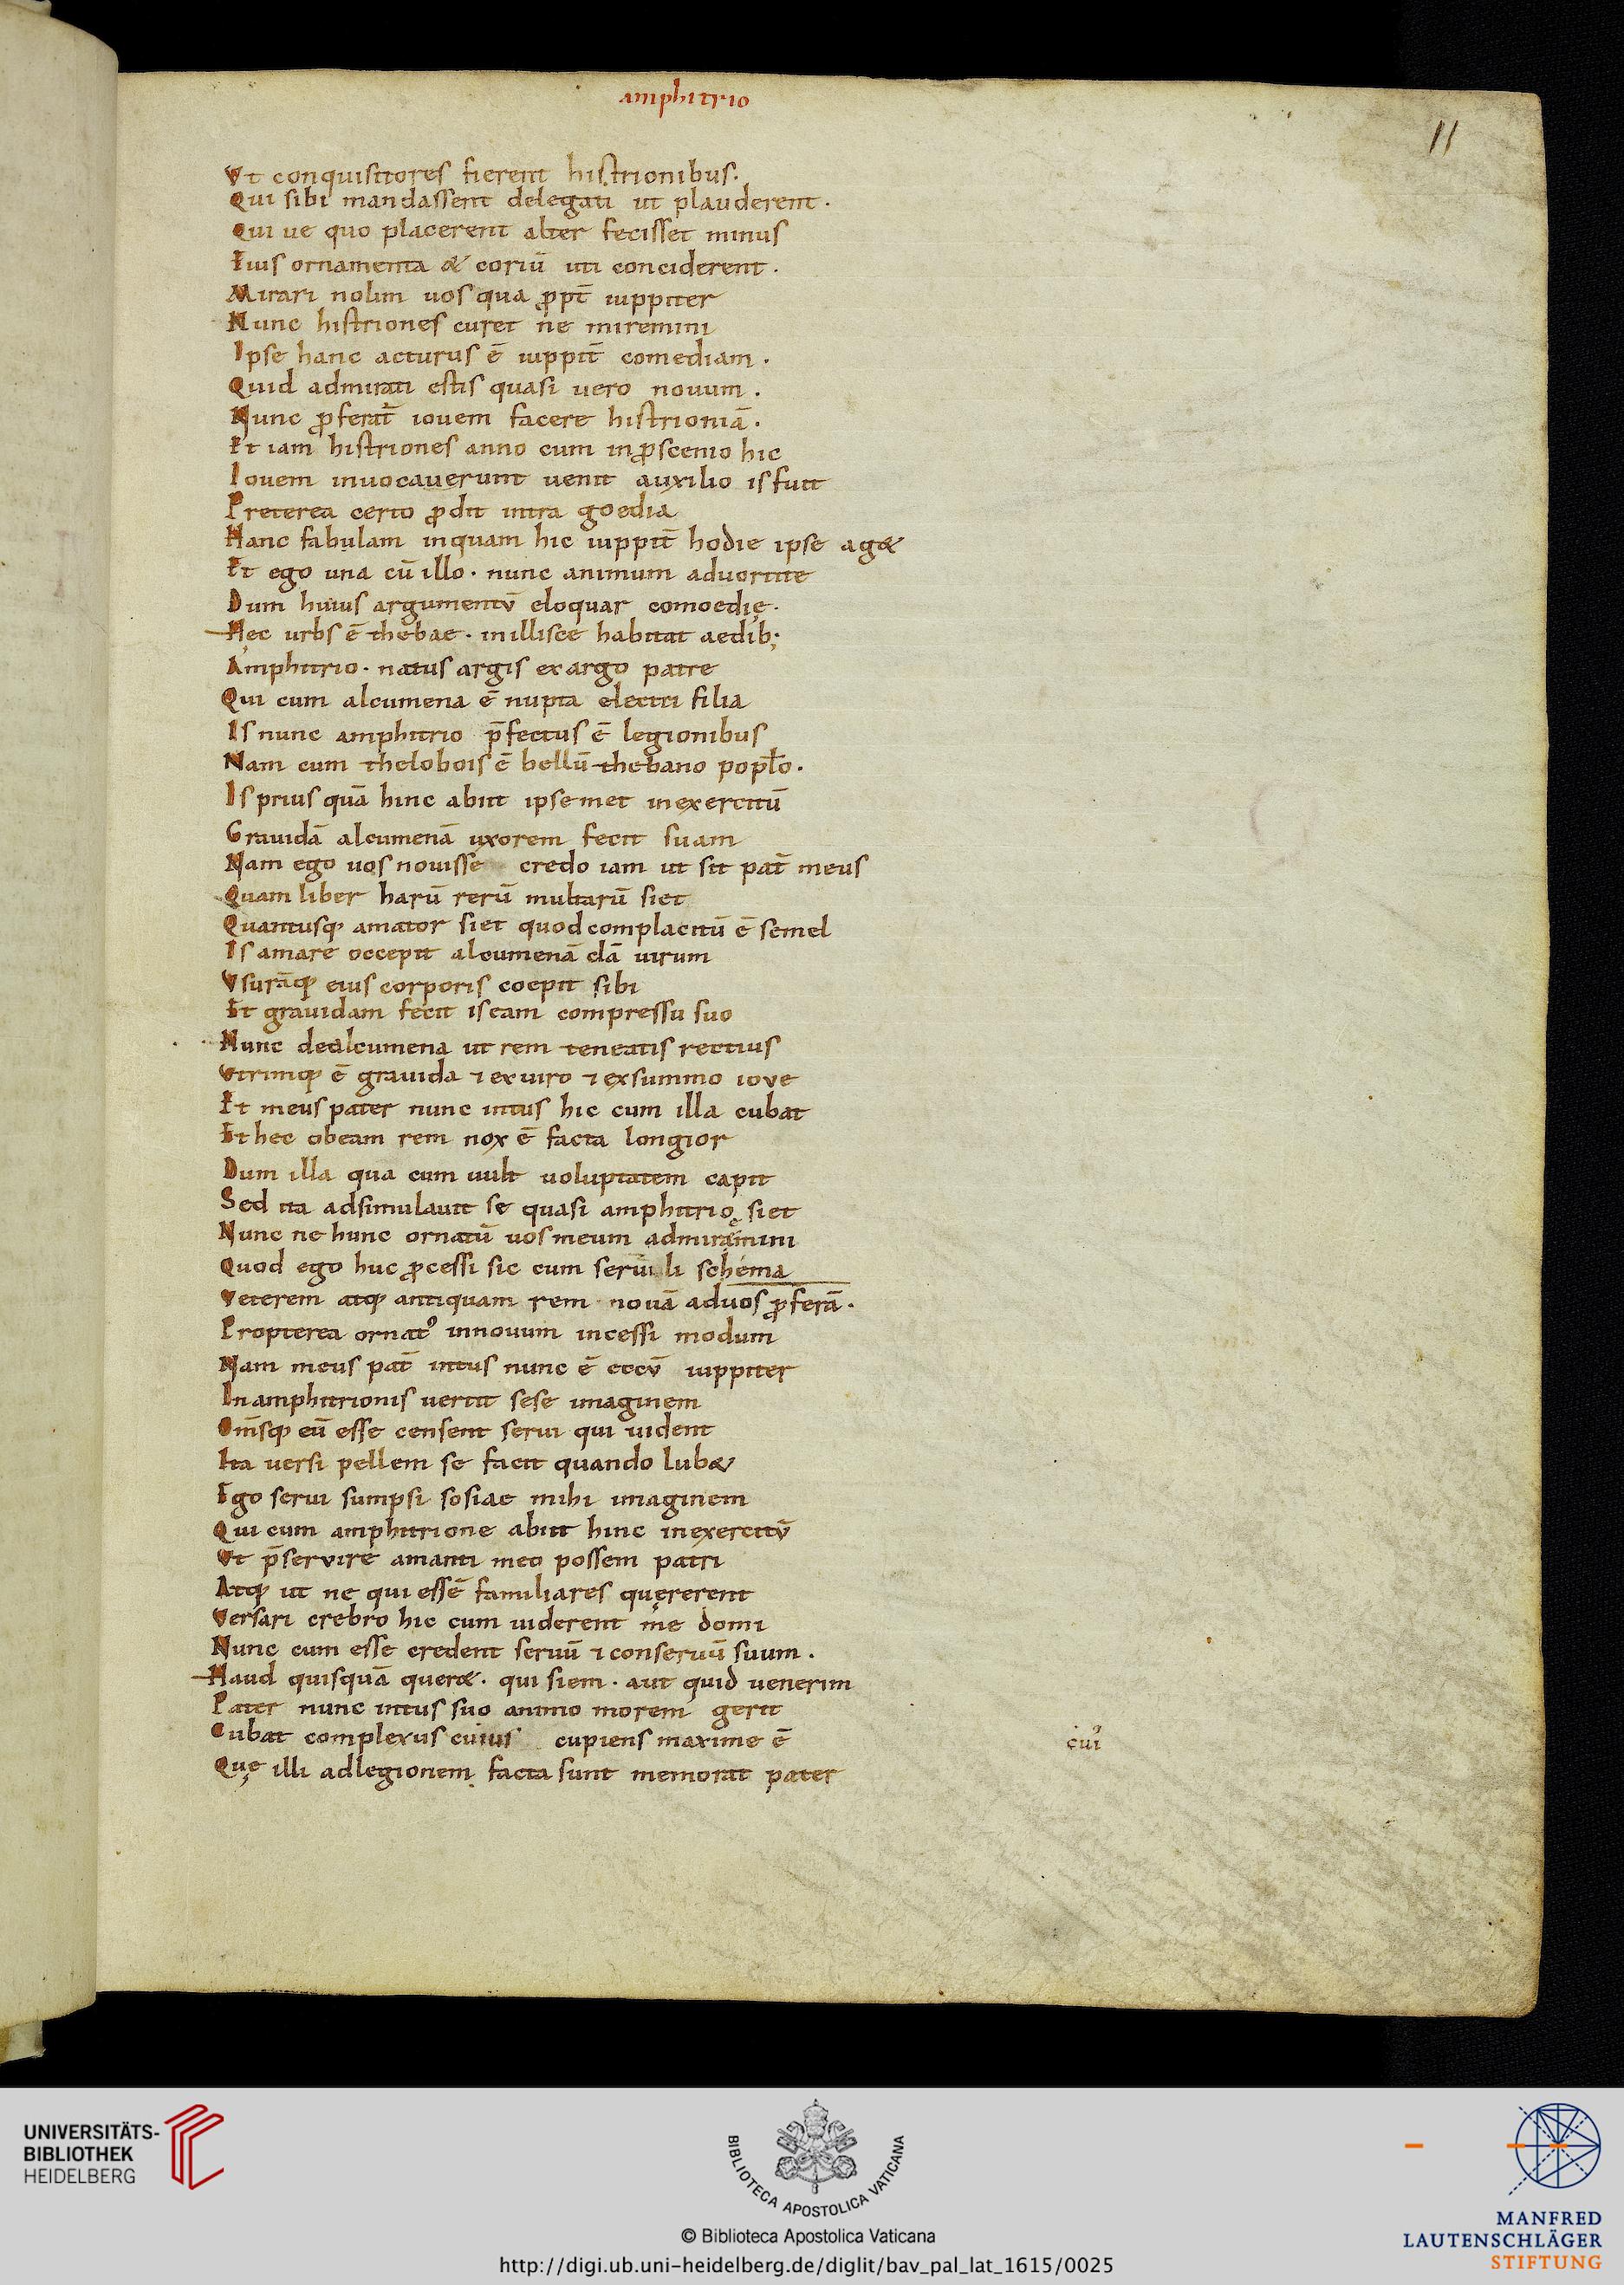 amphitrio
11
Vt conquisitores fierent histrionibus.
Qui sibi mandassent delegati ut plauderent.
Qui ue quo placerent alter fecisset minus
Eius ornamenta & coriū uti conciderent.
Mirari nolim uos qua ꝓpt̄ iuppiter
Nunc histriones curet ne miremini
Ipse hanc acturus ē iuppit̄ comediam.
Quid admirati estis quasi uero nouum.
Nunc ꝓferat̄ iouem facere histrioniā.
Et iam histriones anno cum inꝓscenio hic
Iouem inuocauerunt uenit auxilio is fuit
Preterea certo ꝓdit intra goedia
Hanc fabulam inquam hic iuppit̄ hodie ipse ag&
Et ego una cū illo. nunc animum aduortite
Dum huius argumentū eloquar comoedię.
Hęc urbs ē thebae. inillisce habitat aedib;
Amphitrio. natus argis ex argo patre
Qui cum alcumena ē nupta electri filia
Is nunc amphitrio p̄fectus ē legionibus
Nam cum thelobois ē bellū thebano popl̄o.
Is prius quā hinc abiit ipsemet inexercitū
Grauidā alcumenā uxorem fecit suam
Nam ego uos nouisse credo iam ut sit pat̄ meus
Quam liber harū rerū multarū siet
Quantusq; amator siet quod complacitū ē semel
Is amare occepit alcumenā clā uirum
Vsurāq; eius corporis coepit sibi
Et grauidam fecit is eam compressu suo
Nunc dealcumena ut rem teneatis rectius
Vtrinq; ē grauida ⁊ exuiro ⁊ exsummo ioue
Et meus pater nunc intus hic cum illa cubat
Et hec obeam rem nox ē facta longior
Dum illa qua cum uult uoluptatem capit
Sed ita adsimulauit se quasi amphitrio siet
Nunc ne hunc ornatū uos meum admiremini
Quod ego huc ꝓcessi sic cum seruili schema
Veterem atq; antiquam rem nouā aduos ꝓferā.
Propterea ornat᾽ innouum incessi modum
Nam meus pat̄ intus nunc ē eccū iuppiter
Inamphitrionis uertit sese imaginem
Om̄sq; eū esse censent serui qui uident
Ita uersi pellem se facit quando lub&
Ego serui sumpsi sosiae mihi imaginem
Qui cum amphitrione abiit hinc inexercitū
Vt p̄seruire amanti meo possem patri
Atq; ut ne qui essē familiares quęrerent
Versari crebro hic cum uiderent me domi
Nunc cum esse credent seruū ⁊ conseruū suum.
Haud quisquā quer&. qui siem. aut quid uenerim
Pater nunc intus suo animo morem gerit
Cubat complexus cuius cupiens maxime ē
cui᾽
Quę illi adlegionem facta sunt memorat pater
UNIVERSITÄTS-
BIBLIOTHEK
HEIDELBERG
BIBLIOTECA APOSTOLICA VATICANA
© Biblioteca Apostolica Vaticana
http://digi.ub.uni-heidelberg.de/diglit/bav_pal_lat_1615/0025
MANFRED
LAUTENSCHLÄGER
STIFTUNG